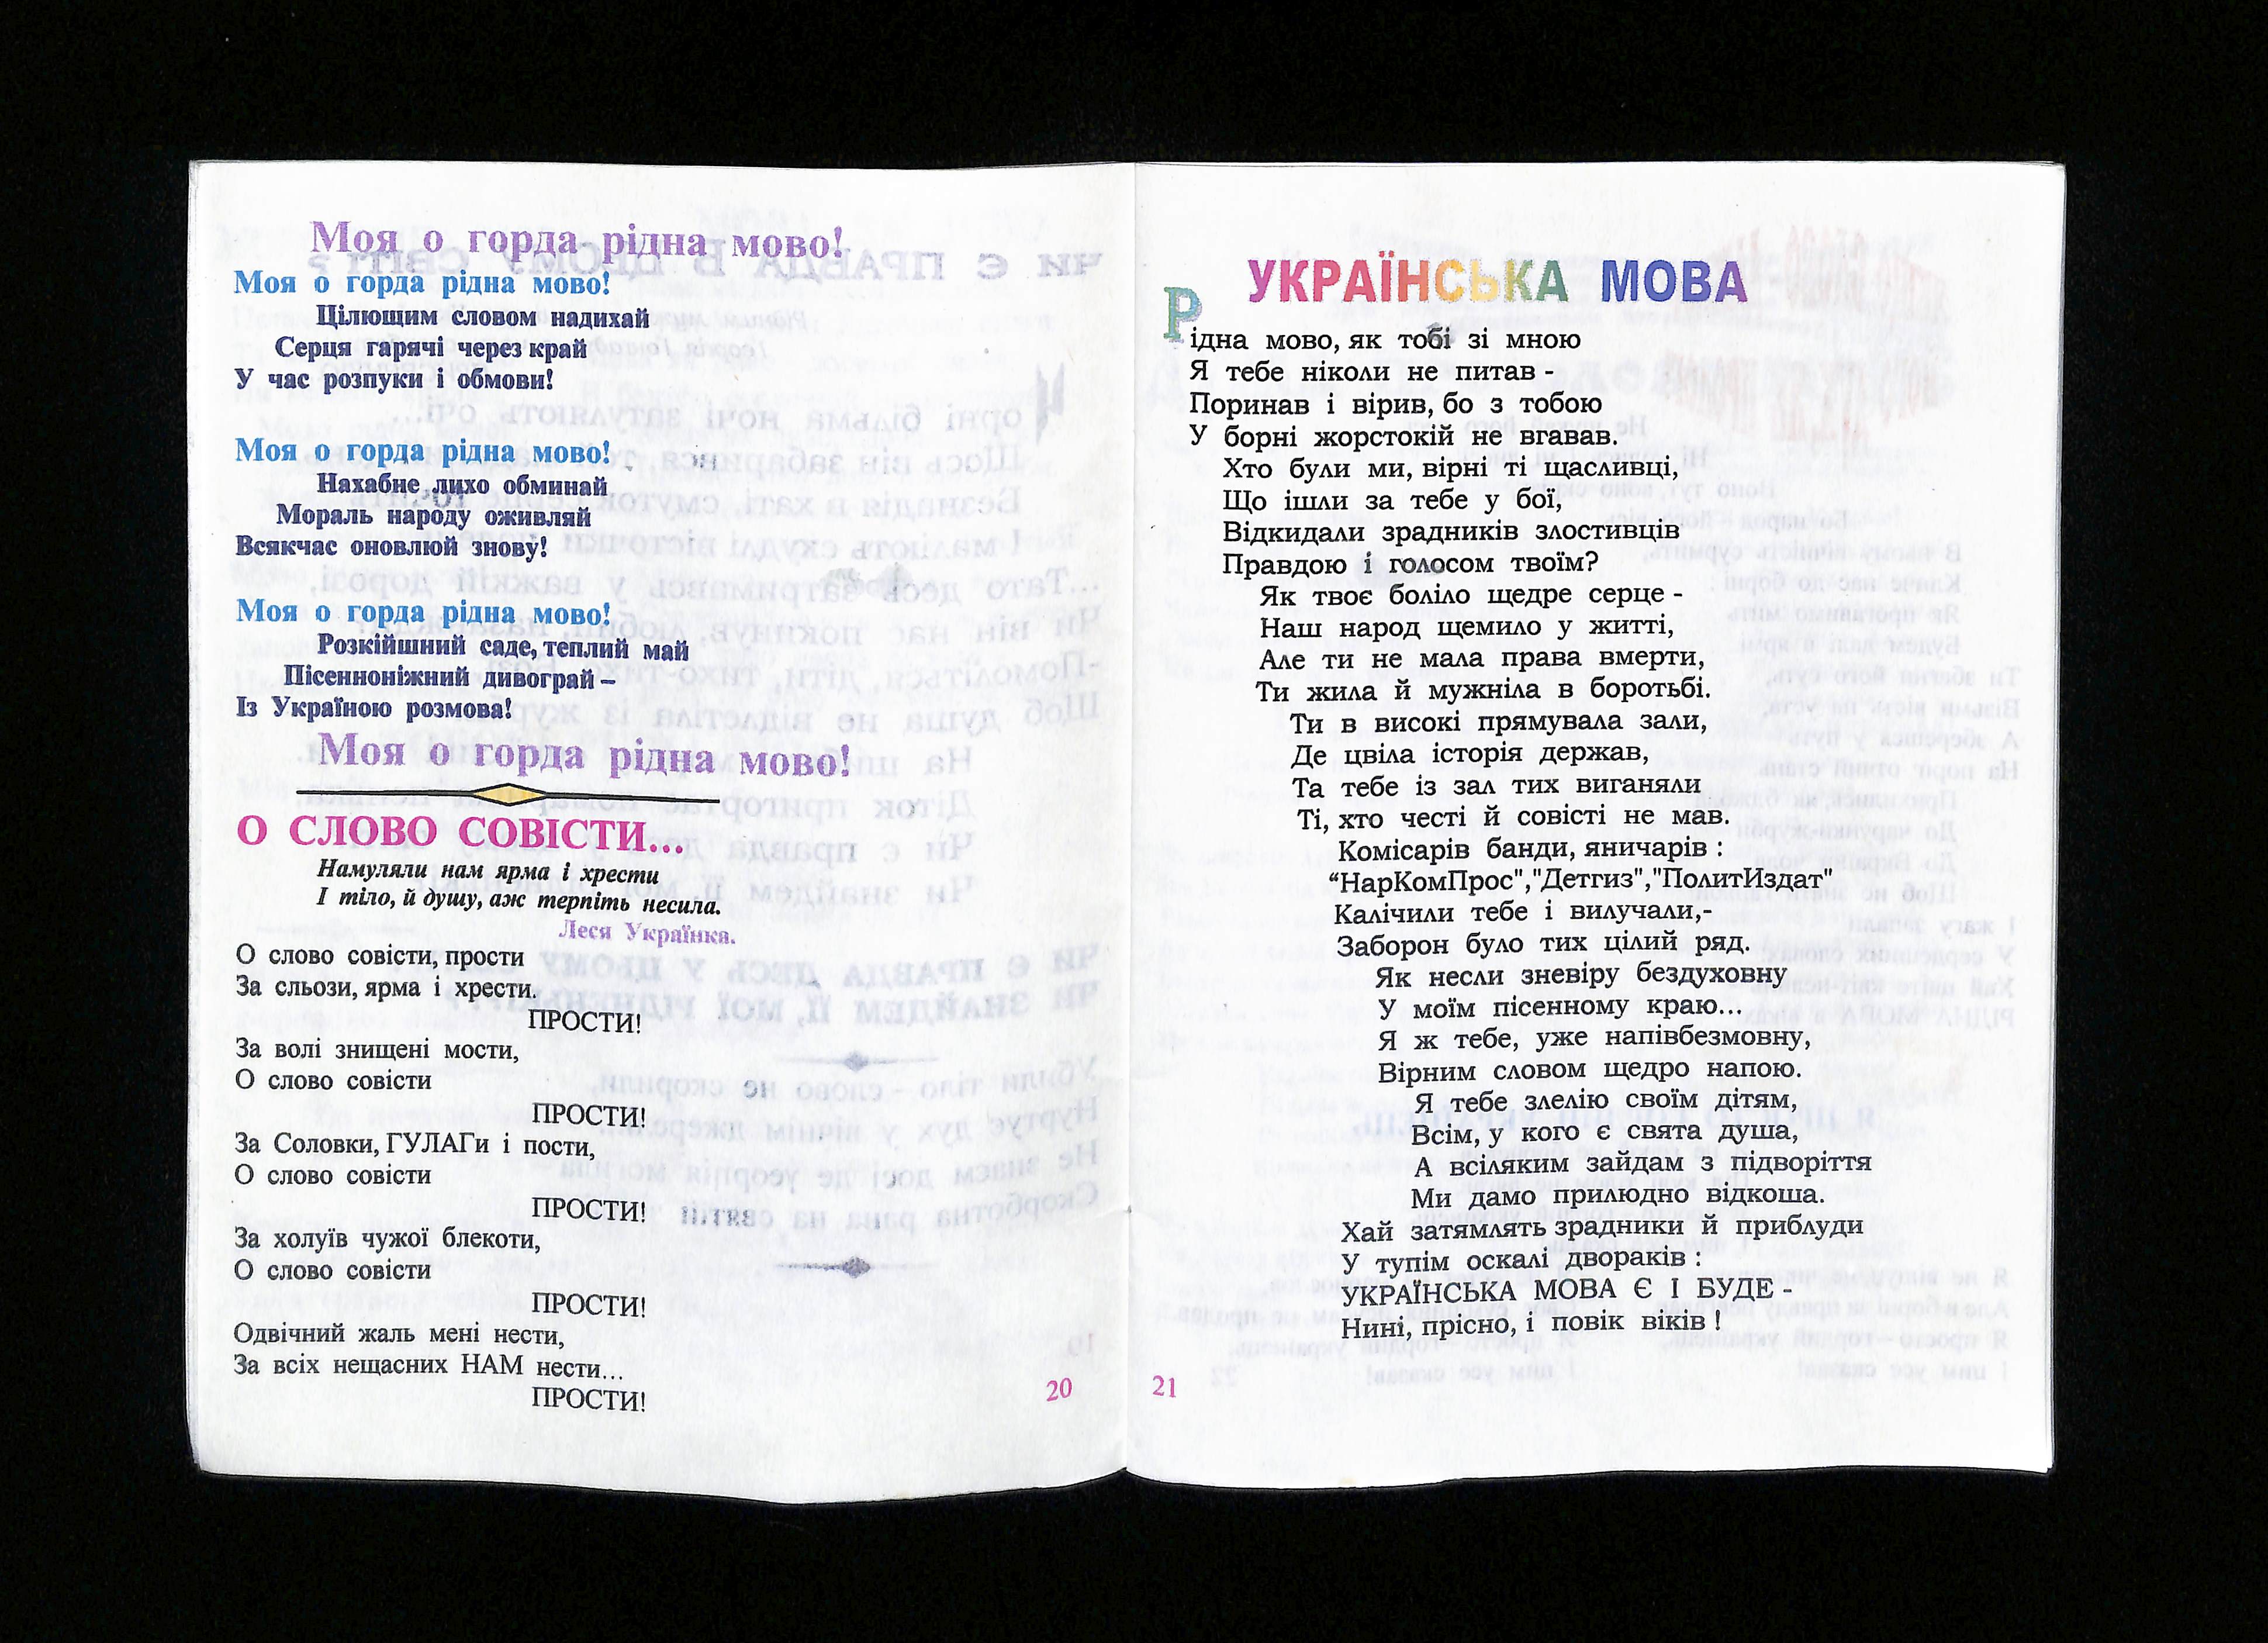 Моя о горда рідна мово!
Моя о горда рідна мово!
Цілющим словом надихай
Серця гарячі через край
У час розпуки і обмови!
Моя о горда рідна мово!
Нахабне лихо обминай
Мораль народу оживляй
Всякчас оновлюй знову!
Моя о горда рідна мово!
Розкійшний саде, теплий май
Пісенноніжний дивограй –
Із Україною розмова!
Моя о горда рідна мово!
О СЛОВО СОВІСТИ...
Намуляли нам ярма і хрести
І тіло, й душу, аж терпіть несила.
Леся Українка.
О слово совісти, прости
За сльози, ярма і хрести.
ПРОСТИ!
За волі знищені мости,
О слово совісти
ПРОСТИ!
За Соловки, ГУЛАГи і пости,
О слово совісти
ПРОСТИ!
За холуїв чужої блекоти,
О слово совісти
ПРОСТИ!
Одвічний жаль мені нести,
За всіх нещасних НАМ нести...
ПРОСТИ!
20
УКРАЇНСЬКА МОВА
Рідна мово, як тобі зі мною
Я тебе ніколи не питав -
Поринав і вірив, бо з тобою
У борні жорстокій не вгавав.
Хто були ми, вірні ті щасливці,
Що ішли за тебе у бої,
Відкидали зрадників злостивців
Правдою і голосом твоїм?
Як твоє боліло щедре серце -
Наш народ щемило у житті,
Але ти не мала права вмерти,
Ти жила й мужніла в боротьбі.
Ти в високі прямувала зали,
Де цвіла історія держав,
Та тебе із зал тих виганяли
Ті, хто честі й совісті не мав.
Комісарів банди, яничарів :
“НарКомПрос","Детгиз","ПолитИздат"
Калічили тебе і вилучали,-
Заборон було тих цілий ряд.
Як несли зневіру бездуховну
У моїм пісенному краю...
Я ж тебе, уже напівбезмовну,
Вірним словом щедро напою.
Я тебе злелію своїм дітям,
Всім, у кого є свята душа,
А всіляким зайдам з підворіття
Ми дамо прилюдно відкоша.
Хай затямлять зрадники й приблуди
У тупім оскалі двораків :
УКРАЇНСЬКА МОВА Є І БУДЕ -
Нині, прісно, і повік віків !
21